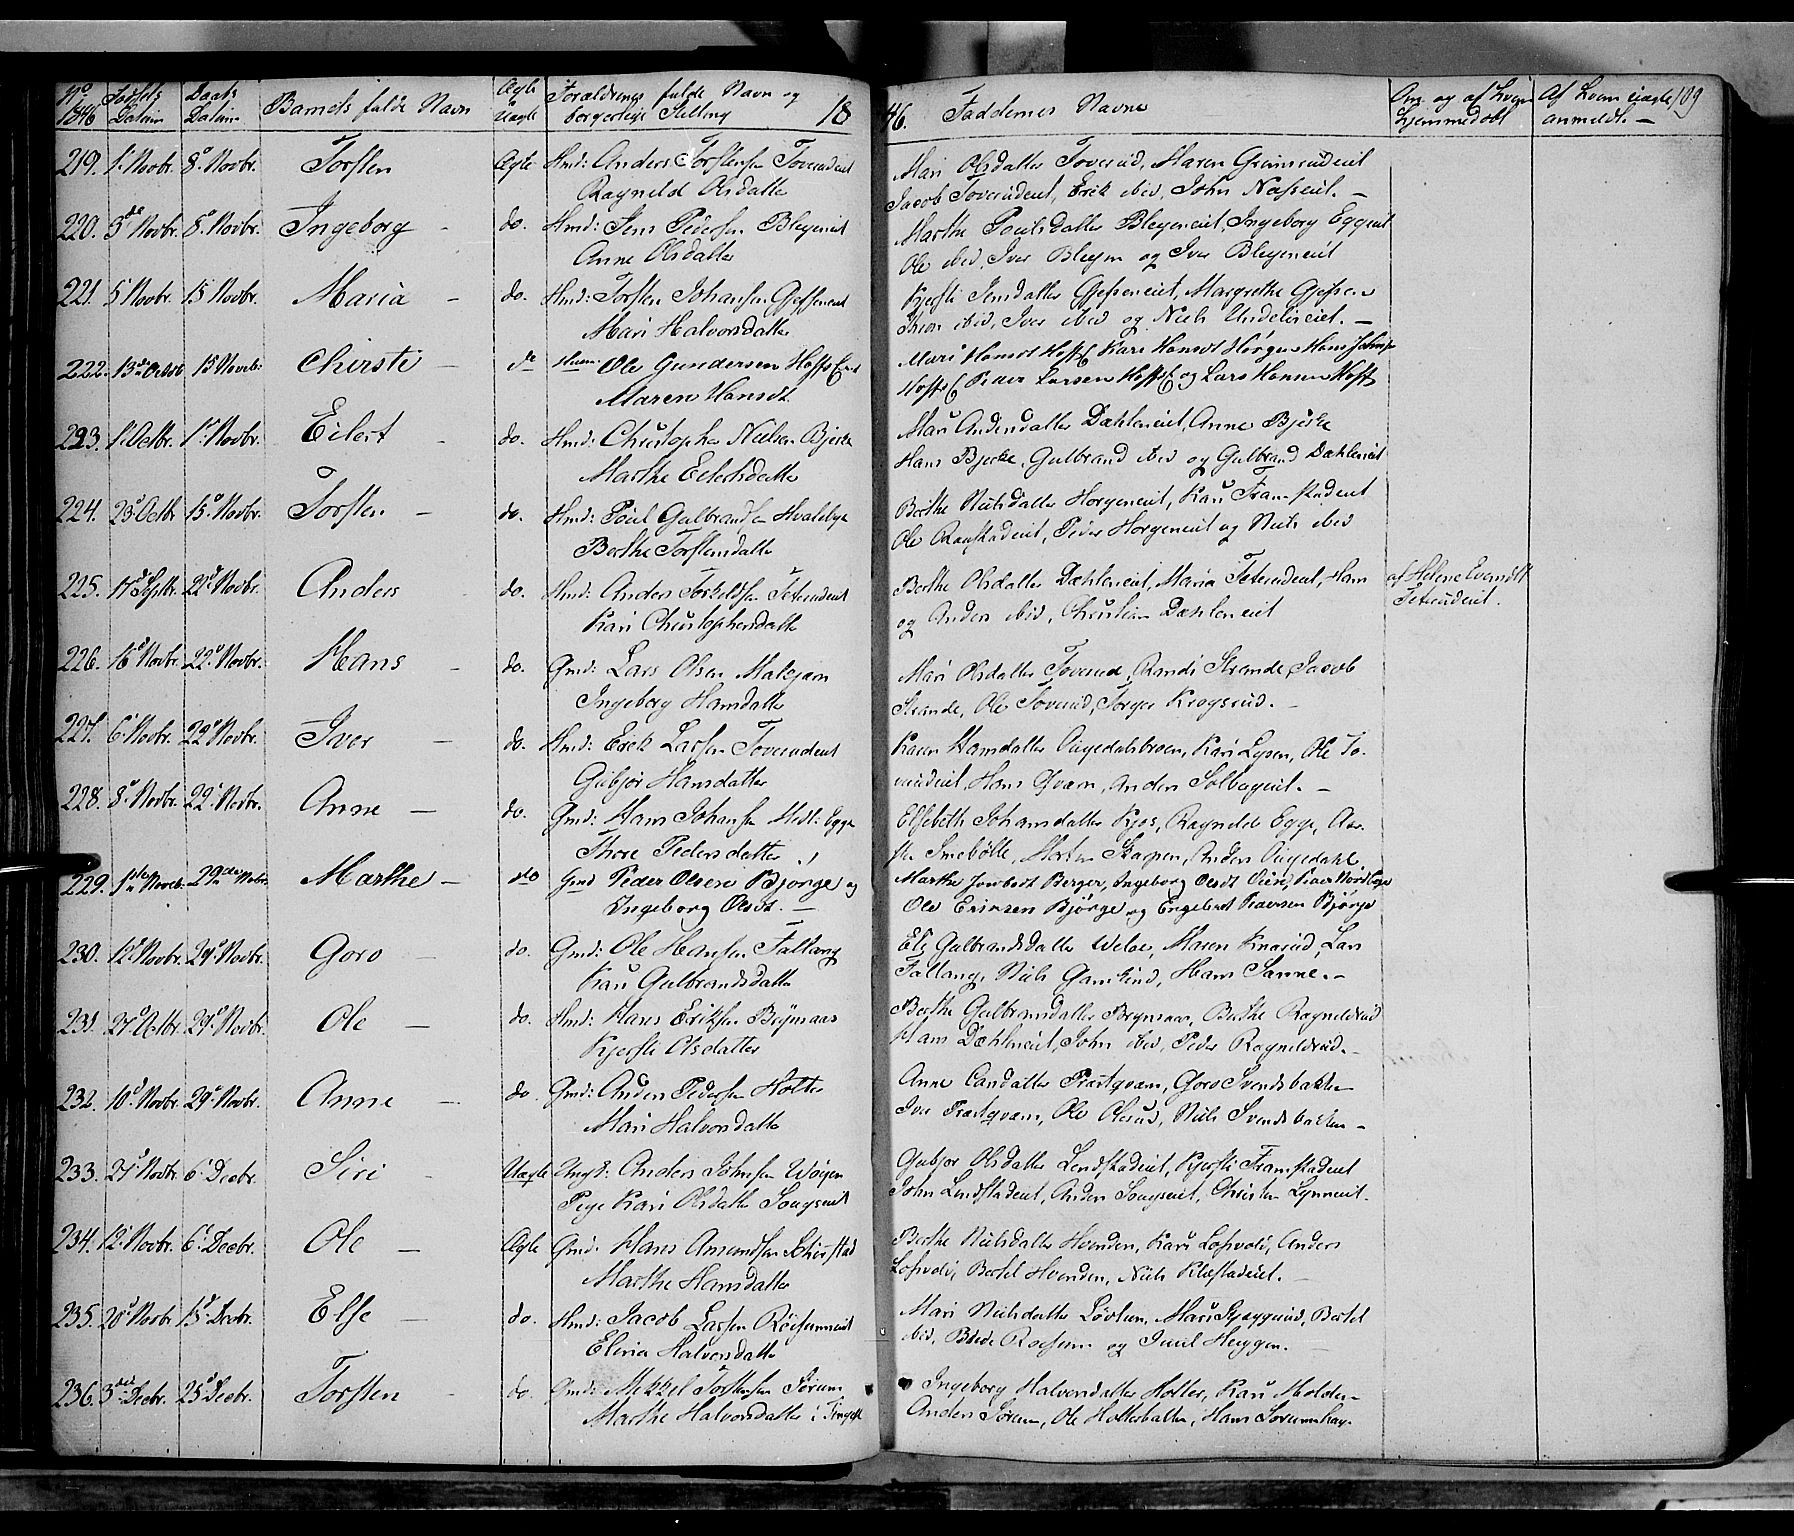 No 1846 Fødsels Datum Daabs Datum Barnets fulde Navn Ægte Uægte Forældrenes fulde Navn og borgerlige Stilling 18
46. Faddernes Navne Om og af hvem hjemmedøbt Af hvem uægte anmeldt. — 109
219. 1. Novbr. 8. Novbr. Torsten Ægte Hmd: Anders Torstensen Toverudeiet
Ragnild Olsdatter
Mari Olsdatter Toverud, Maren Grimsrudeiet
Jacob Toverudeiet, Erik ibid, John Næsseiet. —
220. 5de Novbr. 8. Novbr. Ingeborg do. Hmd: Jens Pedersen Bleyeneiet
Anne Olsdatter
Marthe Poulsdatter Bleyeneiet, Ingeborg Eggeeiet
Ole ibid, Iver Bleyen og Iver Bleyeneiet
221. 5 Novbr. 15 Novbr. Maria — do. Hmd: Torsten Johansen Gjesseneiet
Mari Halvorsdatter
Kjersti Jensdatter Gjesseneiet, Margrethe Gjessen
ibid, Iver ibid og Niels Undelieiet. —
222. 15 Novbr: Chirsti — do Ole Gundersen Hoffs
Maren Hansdt
Mari Hansdt Hoffs Kari Hansdt Horgen Hans
Hoffs Peder Larsen Hoffs og Lars Hansen Hoff
223. 1. Octbr. 1. Novbr. Eilert do. Hmd: Christopher Nielsen Bjerke
Marthe Eilertsdatter
Mari Andersdatter Dæhleneiet, Anne Bjerke
Hans Bjerke, Gulbrand ibid og Gulbrand Dæhleneiet
224. 23 Octbr 15. Novbr. Torsten — do. Hmd: Poul Gulbrandsen Hvaleby
Berthe Torstensdatter
Berthe Nielsdatter Horgeneiet, Kari Framstadeiet
Ole Ranstadeiet, Peder Horgeneiet og Niels ibid
225. 17 Septbr. 22 Novbr. Anders do. Hmd: Anders Torkeldsen Teterudeiet
Kari Christophersdatter
Berthe Olsdatter Dæhleneiet, Maria Teterudeiet, Hans
og Anders ibid, Christian Dæhleneiet
af Helene Evensdt
Teterudeiet.
226. 16 Novbr. 22. Novbr. Hans — do. Gmd: Lars Olsen Malejan
Ingeborg Hansdatter
Mari Olsdatter Toverud, Randi Strande, Jacob
Strande, Ole Toverud, Torger Krogsrud. —
227. 6 Novbr. 22 Novbr. Iver — do. Hmd: Erik Larsen Toverudeiet
Gubjør Hansdatter
Karen Hansdatter Augedalsbroen, Kari Lysen, Ole To-
verudeiet, Hans Qværn, Anders Solbergeiet. —
228. 8 Novbr. 22 Novbr. Anne — do. Gmd: Hans Johansen Egge
Thore Pedersdatter
Elsebeth Johansdatter Kjos, Ragnild Egge, Aa-
Smebølle, Morten Skarpen, Anders Augedahl
229. 1ste Novbr. 29de Novbr. Marthe — do Gmd Peder Olsen Bjørge og
Ingeborg Olsdt. —
Marthe Berger, Ingeborg Olsdt
Ole Ericksen Bjørge og Engebret Bjørge
230. 12 Novbr. 29 Novbr. Goro — do. Gmd: Ole Hansen Fallang
Kari Gulbrandsdatter
Eli Gulbrandsdatter Maren Knarud, Lars
Fallang, Niels Gamkind, Hans Sanne. —
231. 27 Octbr. 29. Novbr. Ole — do. Hmd: Hans Eriksen Brynsaas
Kjersti Olsdatter
Berthe Gulbrandsdatter Brynsaas, Berthe Ragnildrud
Hans Dæhleneiet, John ibid, Peder Ragnildrud. —
232. 10 Novbr. 29. Novbr. Anne — do. Gmd: Anders Pedersen Holter
Mari Halvorsdatter
Anne Præstqværn, Goro Svendsbakken
Iver Præstqværn, Ole Olerud, Niels Svendsbakken —
233. 27 Novbr. 6 Decbr. Siri — Uægte Ungk: Anders Johnsen Woien
Pige Kari Olsdatter Sougseiet
Gubjør Olsdatter Lendstadeiet, Kjersti Framstadeiet
John Lendstadeiet, Anders Sougseiet, Christen Lynneiet.
234. 12. Novbr. 6 Decbr. Ole — Ægte Gmd. Hans Amundsen Schirstad
Marthe Hansdatter
Berthe Nielsdatter Hvinden, Kari Anders
Bertel Hvinden, Niels Klæstadeiet. —
235. 20 Novbr 13 Decbr. Else — do. Hmd: Jacob Larsen Røisumeiet
Eliria Halvorsdatter
Mari Nielsdatter Løvlien, Mari Bertel
ibid, og Poul Heggen. —
236. 3die Decbr. 25 Decbr. Torsten — do. Gmd: Mekkel Torstensen Sørum
Marthe Halvorsdatter i
Ingeborg Halvorsdatter Holter, Kari Molden
Anders Sørum, Ole Holterbakken, Hans Sørumhag-